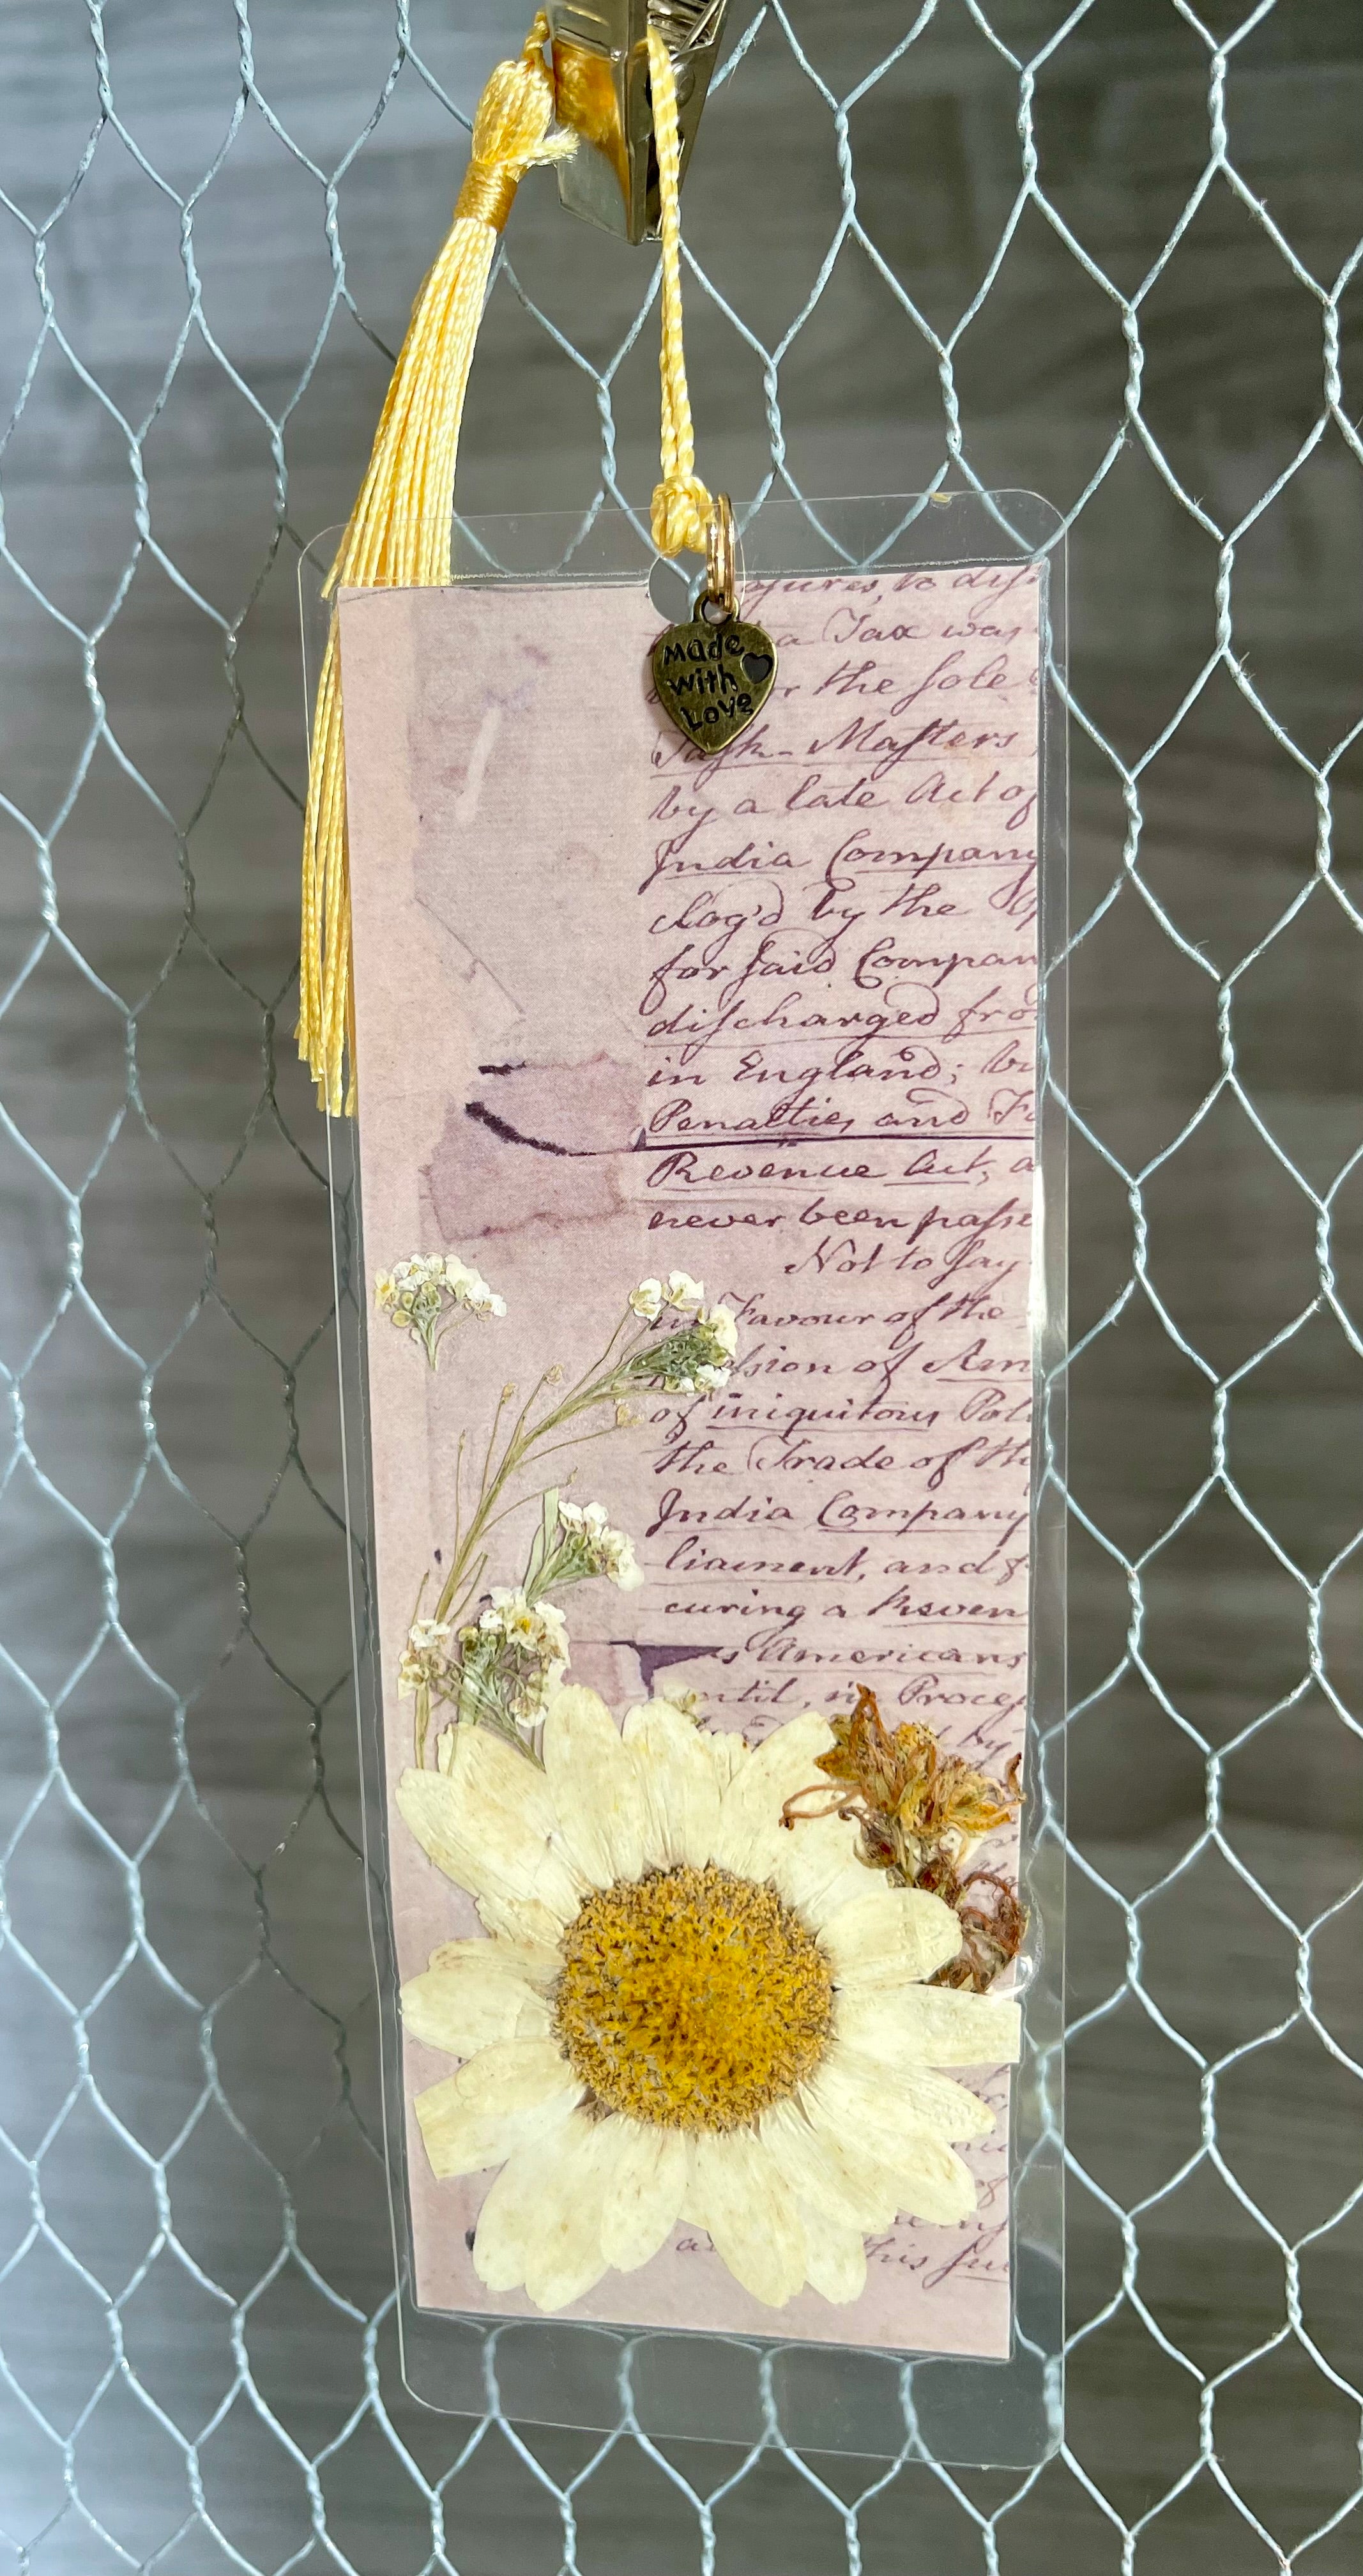 Made
with
Love
to dis
a Tax was
the sole
Task-Masters
by a late Act of
India Company
clog'd by the
for said Compan
discharged fro
in England; bu
Penalties and
Revenue Act, a
never been passe
Not to say
in Favour of the
of Am
of iniquitous Pol
the Trade of th
India Company
liament, and f
curing a Reven
s Americans
ntil, in Proce
by
of
this